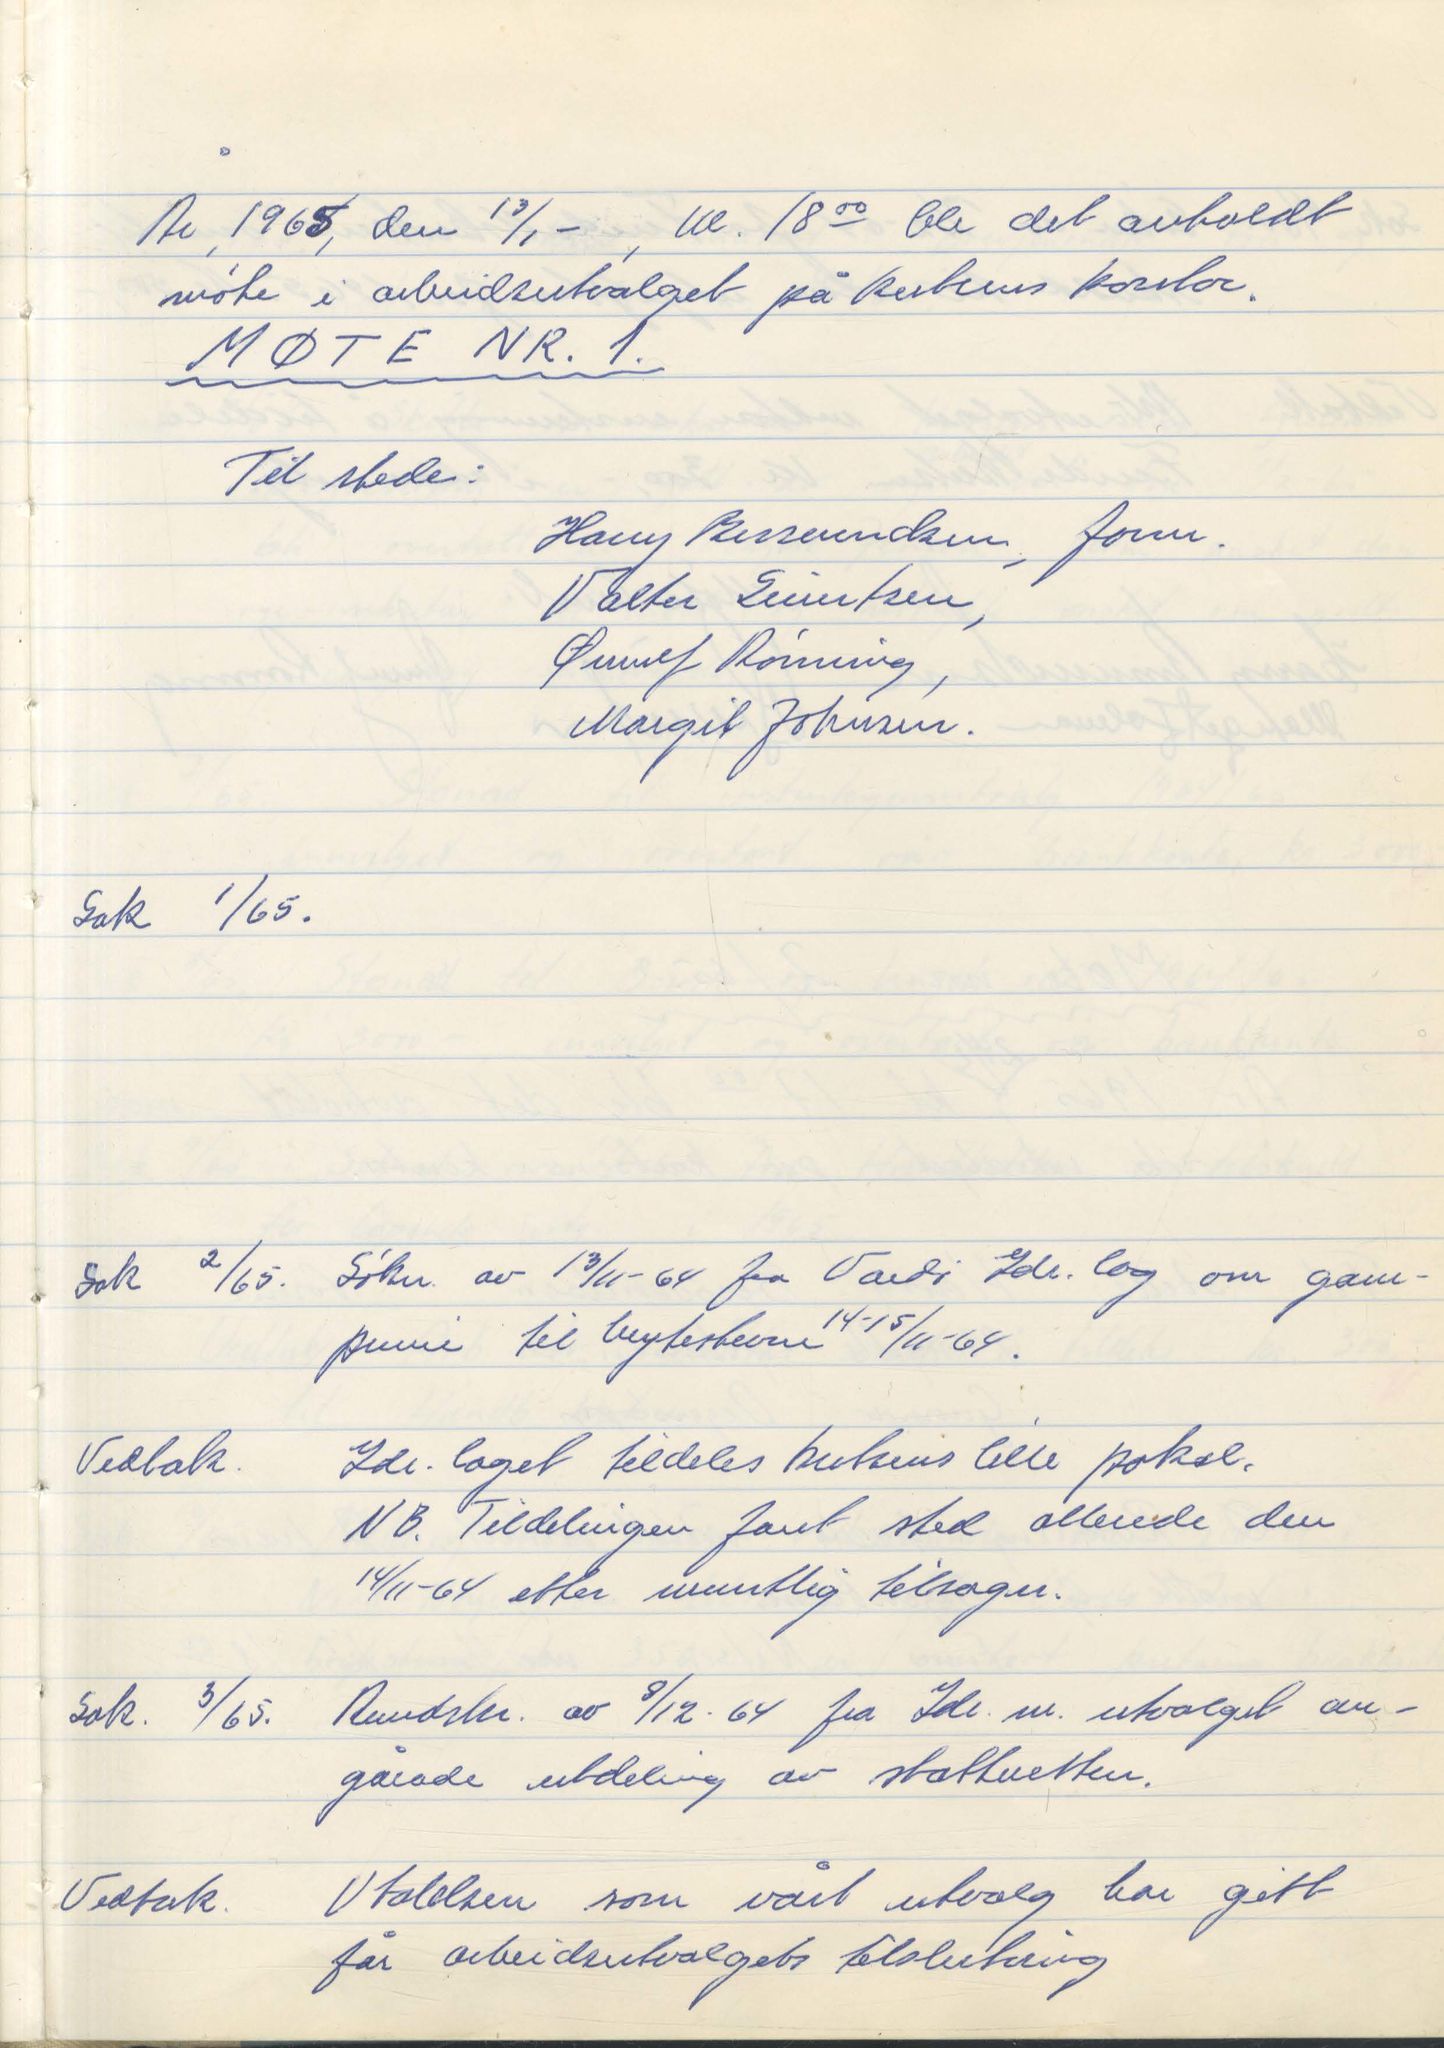 År, 1965, den 13/1 -, kl. 18 00 ble det avholdt
møte i arbeidsutvalget på kretsens kontor.
MØTE NR. 1.
Til stede:
Harry Amundsen, form.
Valter Sivertsen,
Ørnulf Rönning,
Margit Johnsen.
Sak 1/65.
Sak 2/65. Søkn. av 13/11-64 fra Vardi Idr. lag om gave-
premie til brytestevne 14-15/11-64.
Vedtak. Idr. laget tildeles kretsens lille pokal.
NB. Tildelingen fant sted allerede den
14/11-64 etter muntlig tilsagn.
Sak. 3/65. Rundskr. av 8/12-64 fra Idr. m. utvalget an-
gående utdeling av statuetten.
Vedtak. Uttalelsen som vårt utvalg har gitt
får arbeidsutvalgets tilslutning